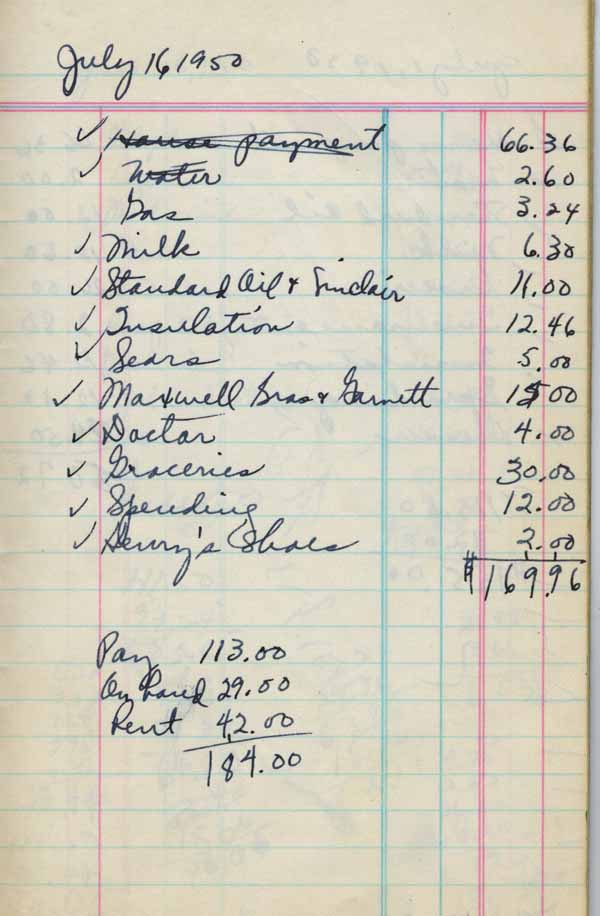 July 16, 1950
✓ House payment 66.36
✓ Water 2.60
Gas 3.24
✓ Milk 6.30
✓ Standard Oil & Sinclair 11.00
✓ Insulation 12.46
✓ Sears 5.00
✓ Maxwell Bros & Garnett 15.00
✓ Doctor 4.00
✓ Groceries 30.00
✓ Spending 12.00
✓ Henry's Shoes 2.00
$169.96
Pay 113.00
On hand 29.00
Rent 42.00
184.00